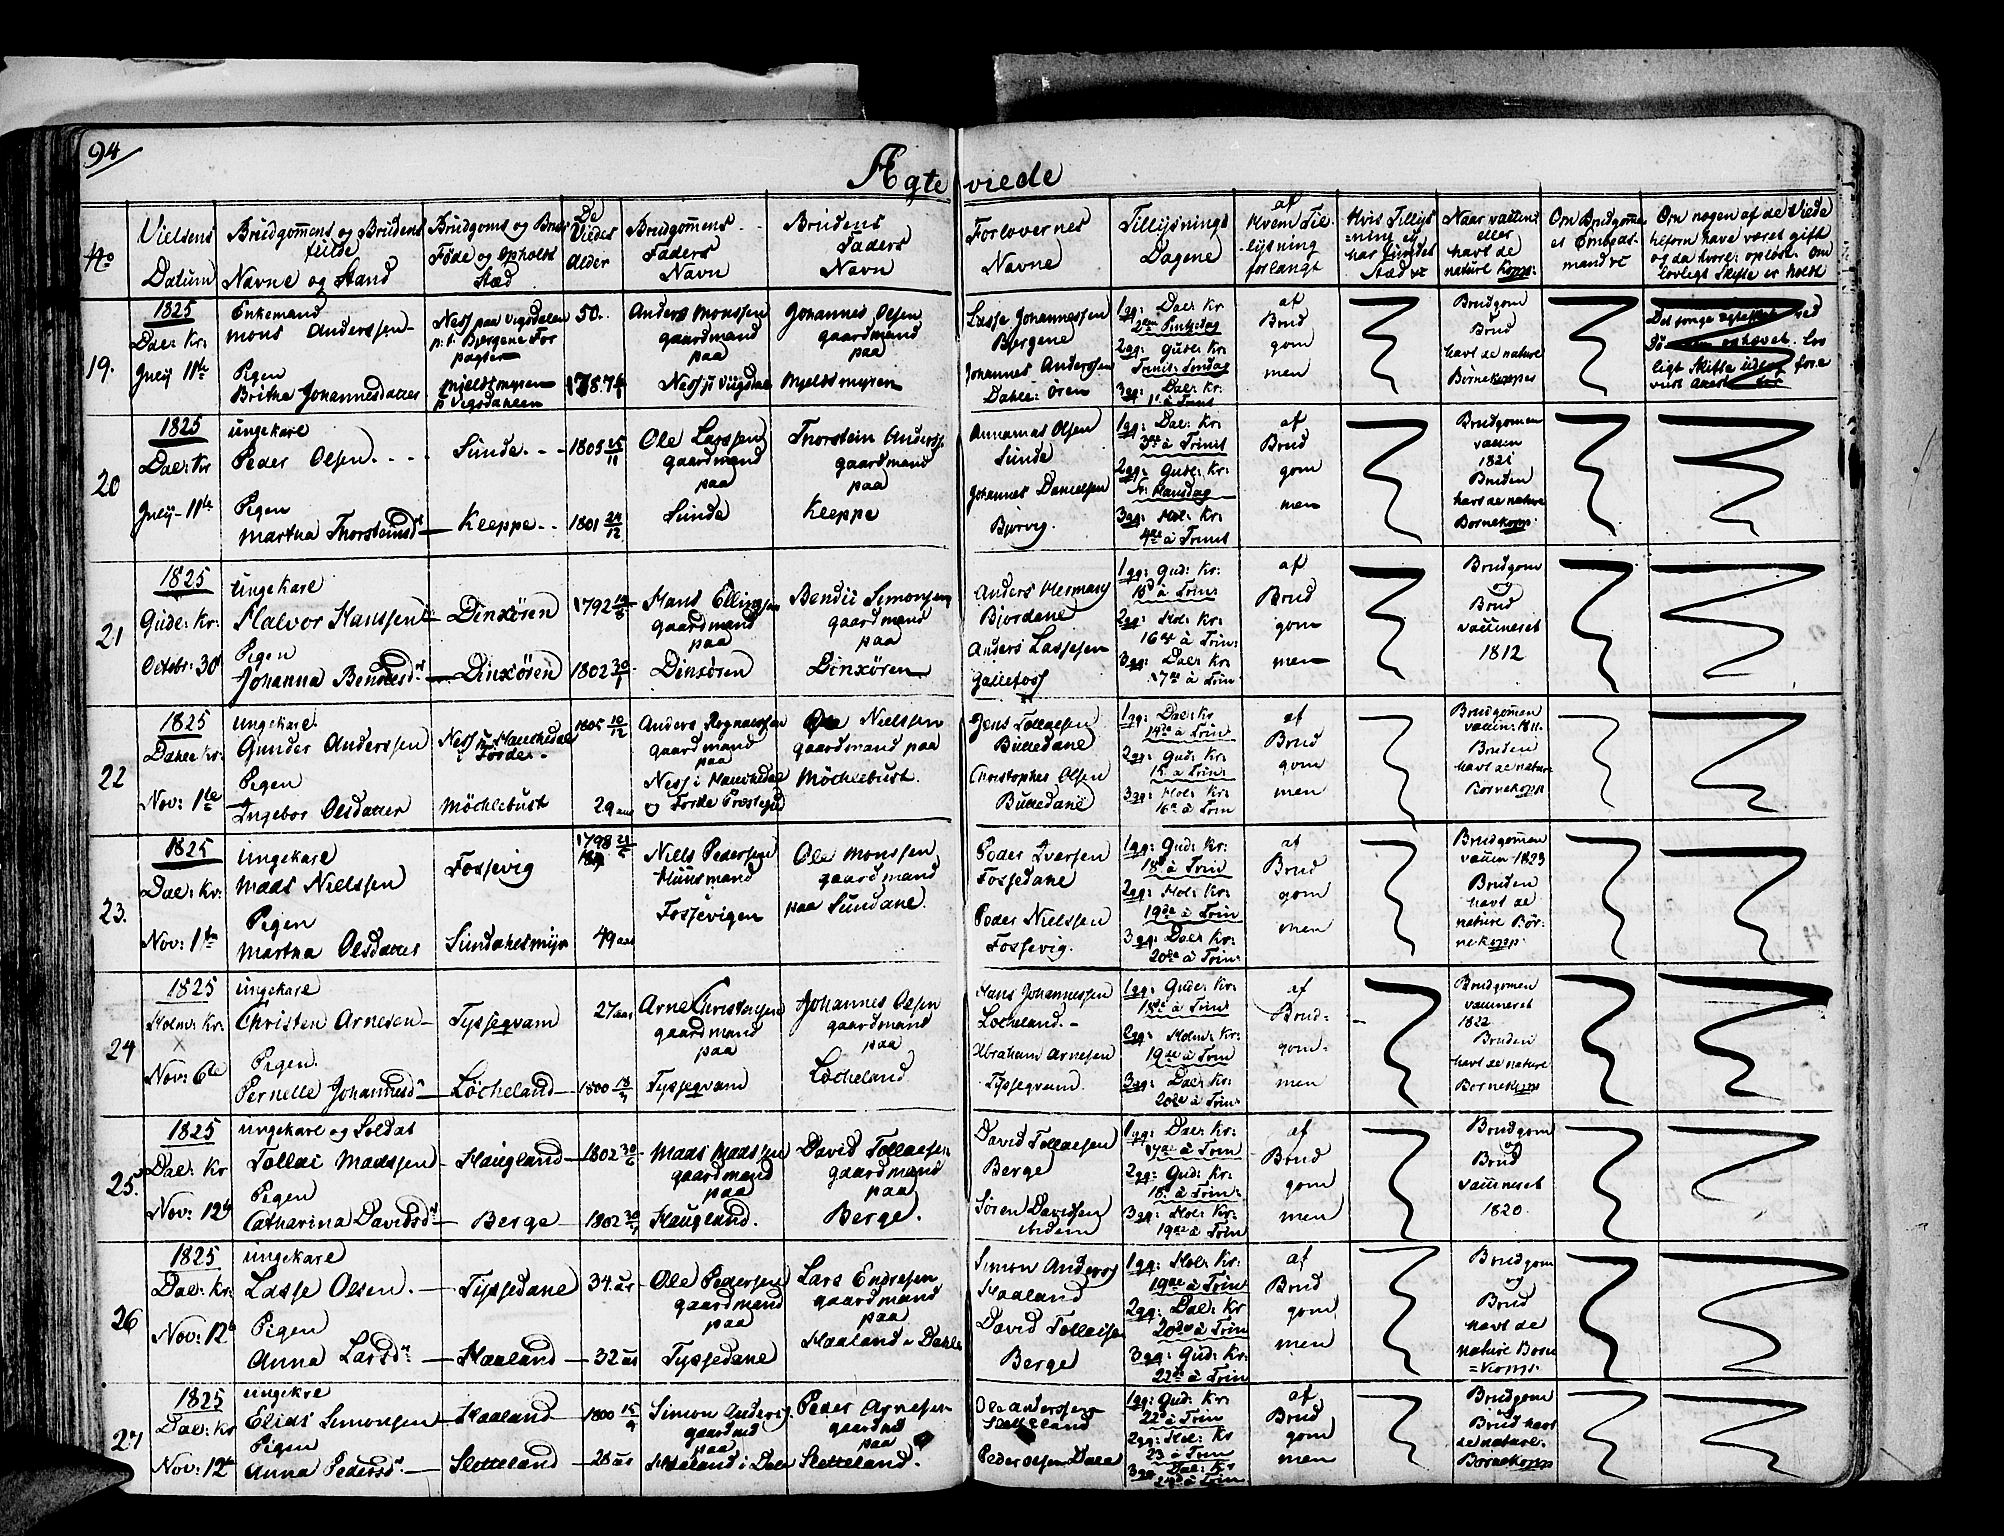 94
Ægteviede
No
Vielsens
Datum
Brudgom̅ens og Brudens
fulde
Navne og Stand
Brudgoms og Brus
Føde og Opholds
Stæd
De
Viedes
Alder
Brudgom̅ens
Faders
Navn
Brudens
Faders
Navn
Forlovernes
Navne
Tillysnings
Dagene
af
Hvem Til-
lysning
forlangt
Hvis Tillys
ning ei
har fundet
Stæd etc
Naar vaccent
eller
havt de
nature Kopp:
Om Brudgom̅e
er Embeds-
mand etc
Om nogen af de Viede
tilforn have været gift
og da hvorl: opløst. Om
lovligt Skifte er holdt
19.
1825
Dal: Kr:
July 11te
Enkemand
Mons Anderssen
Pigen
Britha Johannesdatter
Ness paa Vigsdalen
p: t: Bergene For
pagter
Mjeldsmyren
p Vigsdahlen
50.
Anders Monssen
gaardmand
paa
Ness i Viigsdal
Johannes Olsen
gaardmand
paa
Mjeldsmyren
Lasse Johannessen
Bergene
Johannes Anderssen
Dahle: Øren
1 gg: Dal: Kr
2den Pintsedag
2 gg: Gudl: Kr:
Trinit: Søndag
3 gg: Dal: Kr
1ste à Trinit
af
Brud
gom
men
Brudgom
Brud
havt de nature
Børnekoppes
20
1825
Dal: Kr
July 11te
Ungekarl
Peder Olsen.
Pigen
Martha Thorsteinsdr
Sunde.
Kleppe
1805 25/11
1801 24/12
Ole Larssen
gaardmand
paa
Sunde
Thorstein Anderss:
gaardmand
paa
Kleppe
Annamas Olsen
Sunde
Johannes Danielsen
Bjørvig.
1 gg: Dal: Kr:
3die à Trinit
2 gg: Gudl: Kr:
St: Hansdag
3 gg: Hol: Kr:
4de à Trinit
af
Brud
gom
men
Brudgomen
vaccin
1821
Bruden
havt de nature
Børnekopp:
21
1825
Gudl: Kr:
Octobr: 30
Ungekarl
Halvor Hanssen
Pigen
Johanna Bendixsdr
Dinxören
Dinxören
1792
1802 30/1
Hans Ellingsen
gaardmand
paa
Dinxören
Bendix Simonsen
gaardmand
paa
Dinxören
Anders Hermans
Bjordane
Anders Lassesen
1 gg: Gud: Kr:
15de à Trin:
2 gg: Hol: Kr:
16de à Trin:
3 gg: Dal: Kr:
17de à Trin
af
Brud
gom
men
Brudgom
og
Brud
vaccineret
1812
22
1825
Dahle Kr:
Nov: 1te
Ungekarl
Gunder Anderssen
Pigen
Ingebor Olsdatter
i Förde
Möchlebust
1805 10/12
29 aar
Anders Rognaldssen
gaardmand
paa
Ole Nielssen
gaardmand paa
Möchlebust.
Jens Tollaksen
Bulledane
Christopher Olsen
Bulledane
1 gg: Dal: Kr
14de à Trin
2 gg: Gud: Kr:
15. à Trin:
3 gg: Hol: Kr:
16de à Trin
af
Brud
gom
men
Brudgomen
vaccin: 1811.
Bruden
havt de nature
Børnekopp
23.
1825
Dal: Kr:
Nov: 1te
Ungekarl
Mads Nielssen
Pigen
Martha Olsdatter
Fossevig
Sundahlsmyr
1798
49 aar
Niels Pedersen
Huusmand
Fossevigen
Ole Monssen
gaardmand
paa Sundane.
Peder Iversen
Fossedane
Peder Nielssen
Fossevig.
1 gg: Gud: Kr:
18de à Trin
2 gg: Hol: Kr:
19de à Trin
3 gg: Dal: Kr:
20de à Trin:
af
Brud
gom
men
Brudgomen
vaccin 1823
Bruden
havt de
nature Bør-
nekopp:
24
1825
Holm: Kr:
x
Nov: 6te
Ungekarl
Christen Arnesen
Pigen.
Pernelle Johannesdr
Tyssegvam
Löcheland
27 aar
1800
Arne Christensen
gaardmand
paa
Tyssegvam
Johannes Olsen
gaardmand
paa
Löcheland
Hans Johannessen
Löcheland.
Abraham Arnesen
Tyssegvam.
1 gg: Gudl: Kr:
18de à Trin
2 gg: Holm: Kr:
19de à Trin
3 gg: Dal: Kr:
20de à Trin:
af
Brud-
gom-
men
Brudgomen
vaccineret
1822
Bruden
havt de nature
Børnekopp
25.
1825
Dal: Kr
Nov: 12te
Ungekarl og Soldat
Tollac Madssen
Pigen
Catharina Davidsdr
Haugland
Berge
1802 30/6
1802
Mads Madssen
gaardmand
paa
Haugland.
David Tollacsen
gaardmand
paa
Berge.
David Tollacsen
Berge
Søren Davidsen
ibidem
1 gg: Dal: Kr:
17de à Trin:
2 gg: Gud: Kr:
18. à Trin:
3 gg: Hol: Kr:
19de à Trin
af
Brud
gom
men
Brudgom
og
Brud
vaccineret
1820.
26
1825
Dal: Kr:
Nov: 12te
Ungekarl
Lasse Olsen.
Pigen
Anna Larsdr
Tyssedane
Haaland
34. aar
32 aar
Ole Pedersen
gaardmand
paa
Tyssedane
Lars Endresen
gaardmand
paa
Haaland i Dahle
Simon Anders
Haaland
David Tollacsen
Berge
1 gg: Hol: Kr:
19de à Trin
2 gg: Dal: Kr
20de à Trin
3 gg: Gud: Kr:
22de à Trin
af
Brud
gom
men
Brudgom
og
Brud
havt de
nature Børne
=kopp.
27
1825
Dal: Kr
Nov: 12te
Ungekrl
Elias Simonsen
Pigen
Anna Pedersdr.
Haaland
Sletteland
1800 15/9
28 aar
Simon Anders.
gaardmd
paa
Haaland i Dale
Peder Arnesen
gaardmd
paa
Sletteland.
Ole Anderssen
Sletteland
Peder Olsen Dale
1 gg: Gud: Kr
22de à Trin
2 gg: Hol: Kr
23 à Trin
3 gg: Dal: Kr
24de à Trin:
af
Brud
gom
men
Brudgom
og
Brud havt
de nature
Børnekopp